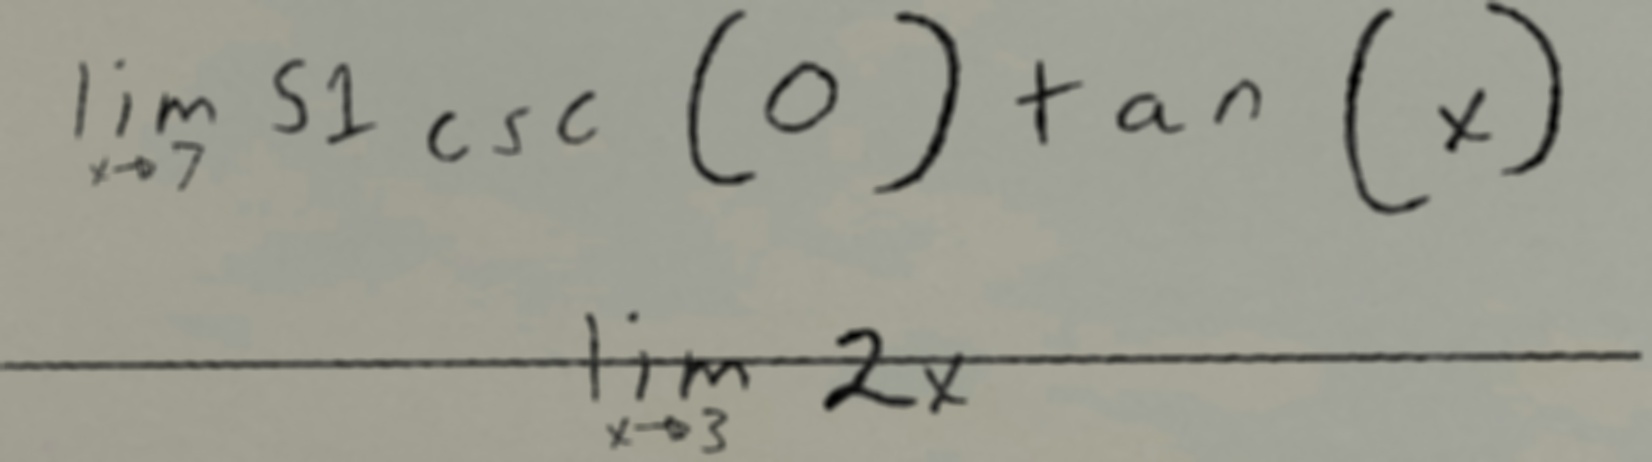 lim x→7 51 csc (0) tan (x)
lim x→3 2x